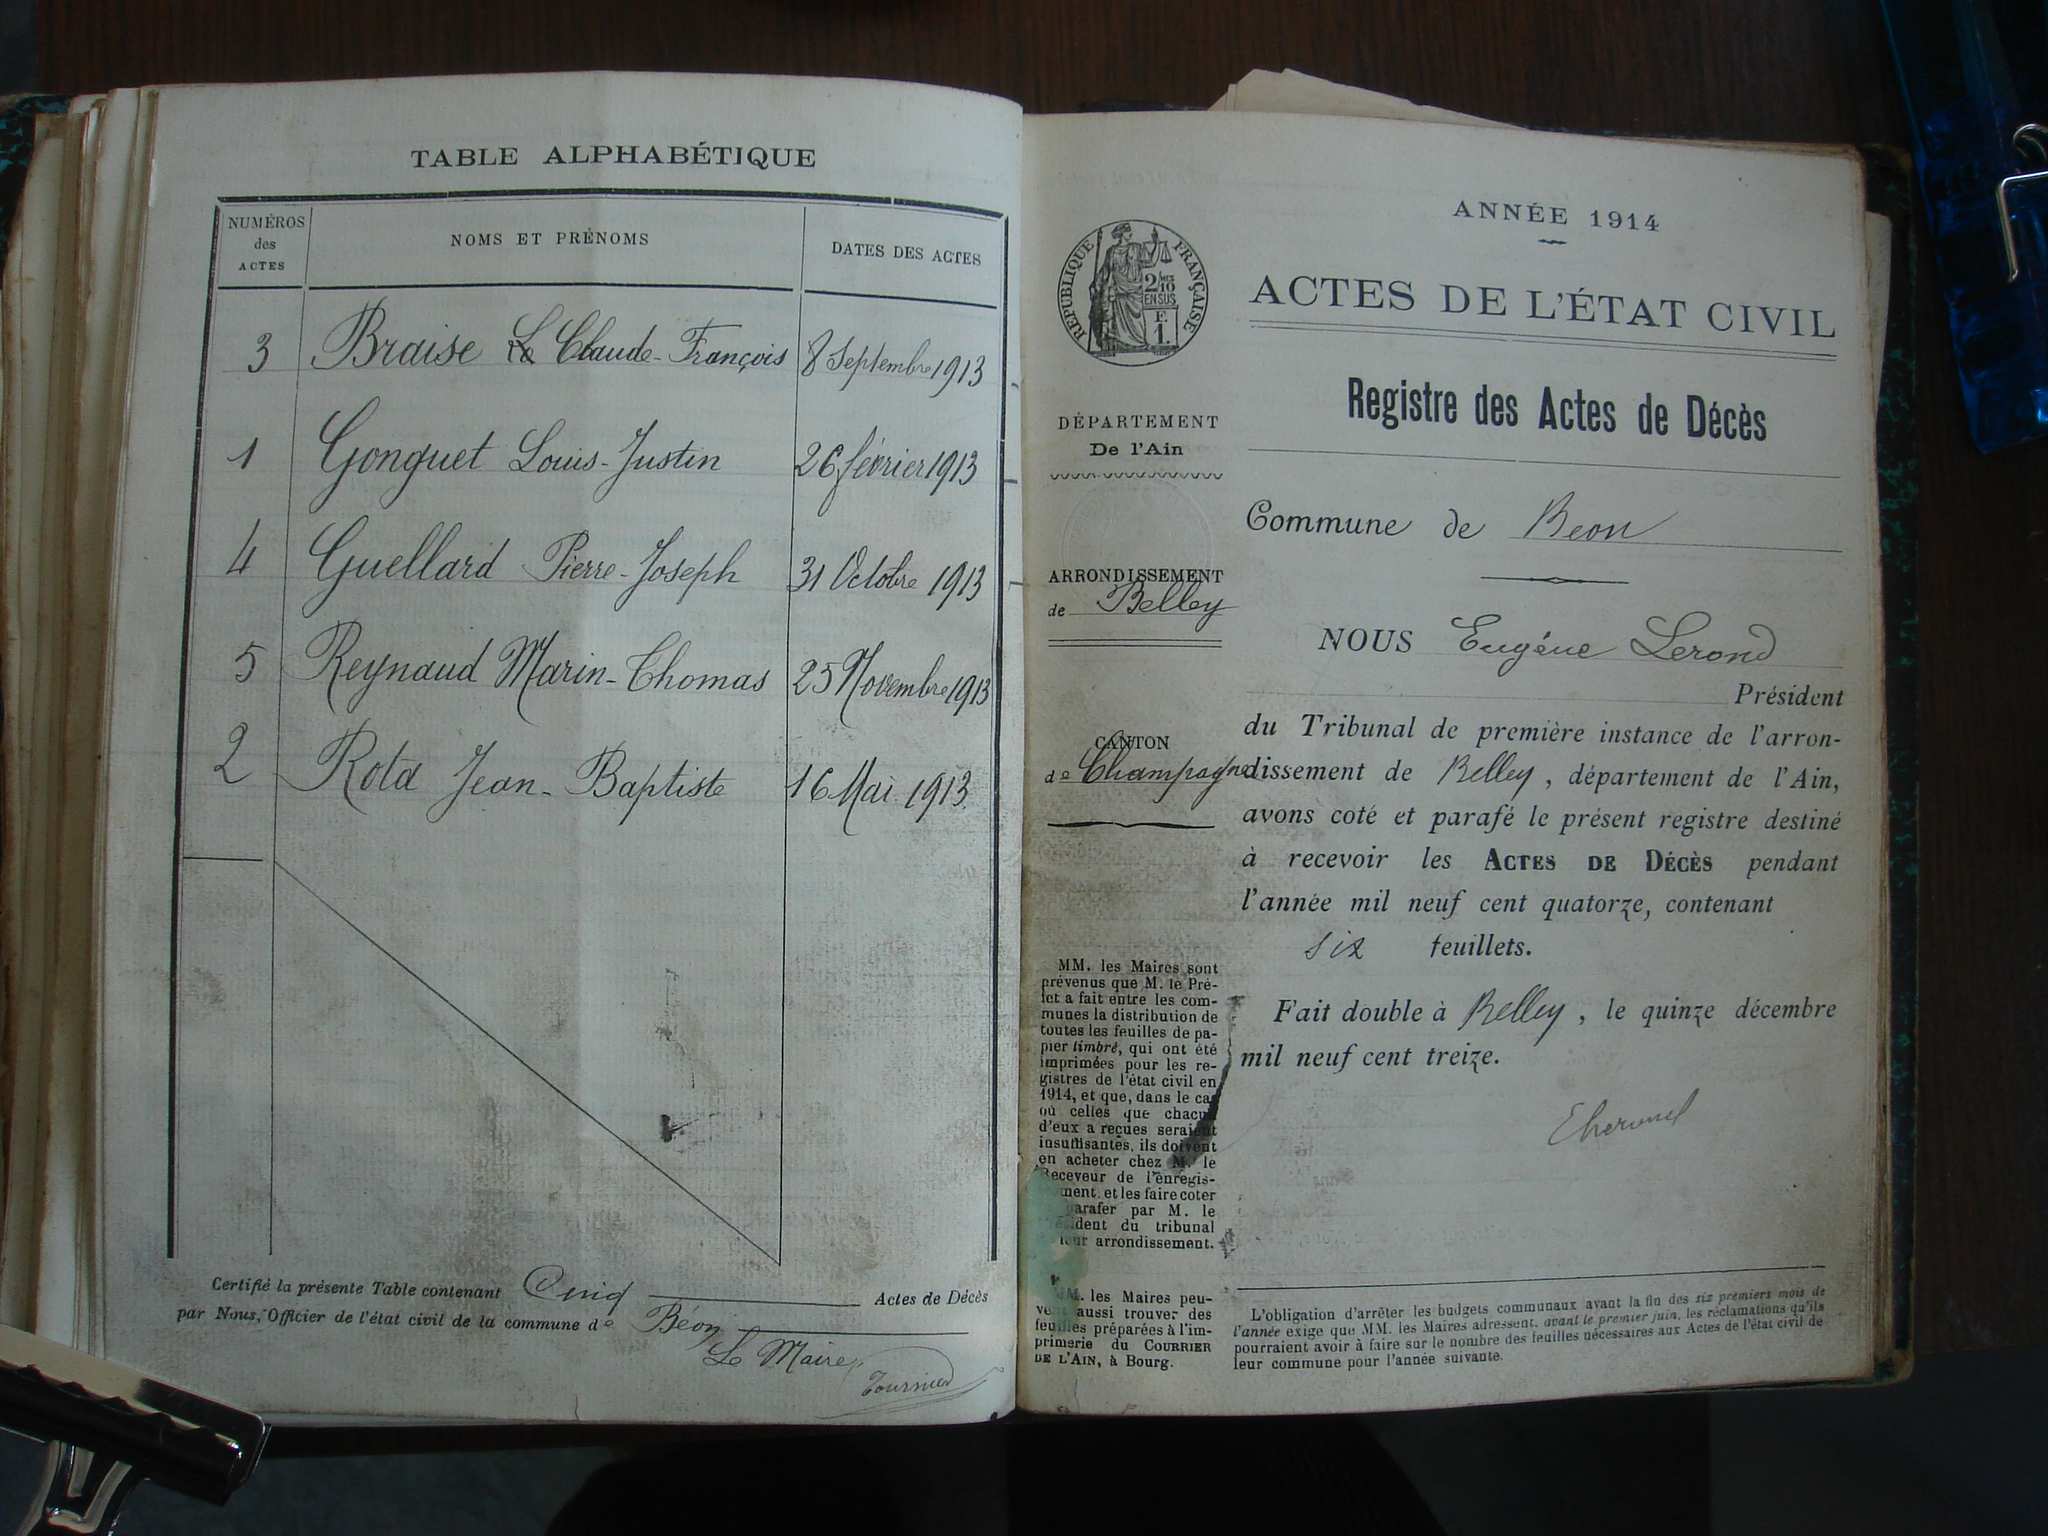 TABLE ALPHABÉTIQUE
NUMÉROS des ACTES
NOMS ET PRÉNOMS
DATES DES ACTES
3 Braise Claude-François 8 Septembre 1913
1 Gonguet Louis-Justin 26 février 1913
4 Guellard Pierre-Joseph 31 Octobre 1913
5 Reynaud Marin-Thomas 25 Novembre 1913
2 Rota Jean-Baptiste 16 Mai 1913
Certifié la présente Table contenant Cinq Actes de Décès
par Nous, Officier de l'état civil de la commune de Béon
Le Maire,
Tournier
ANNÉE 1914
RÉPUBLIQUE FRANÇAISE
2/10
EN SUS
F.
1.
ACTES DE L'ÉTAT CIVIL
Registre des Actes de Décès
DÉPARTEMENT
De l'Ain
ARRONDISSEMENT
de Belley
CANTON
de Champagne
MM. les Maires sont
prévenus que M. le Pré-
fet a fait entre les com-
munes la distribution de
toutes les feuilles de pa-
pier timbré, qui ont été
imprimées pour les re-
gistres de l'état civil en
1914, et que, dans le cas
où celles que chacun
d'eux a reçues seraient
insuffisantes, ils doivent
en acheter chez M. le
Receveur de l'enregis-
ment, et les faire coter
parafer par M. le
dent du tribunal
leur arrondissement.
MM. les Maires peu-
vent aussi trouver des
feuilles préparées à l'im-
primerie du COURRIER
DE L'AIN, à Bourg.
Commune de Beon
NOUS Eugène Lerond
Président
du Tribunal de première instance de l'arron-
dissement de Belley, département de l'Ain,
avons coté et parafé le présent registre destiné
à recevoir les ACTES DE DÉCÈS pendant
l'année mil neuf cent quatorze, contenant
six feuillets.
Fait double à Belley, le quinze décembre
mil neuf cent treize.
L'obligation d'arrêter les budgets communaux avant la fin des six premiers mois de
l'année exige que MM. les Maires adressent, avant le premier juin, les réclamations qu'ils
pourraient avoir à faire sur le nombre des feuilles nécessaires aux Actes de l'état civil de
leur commune pour l'année suivante.